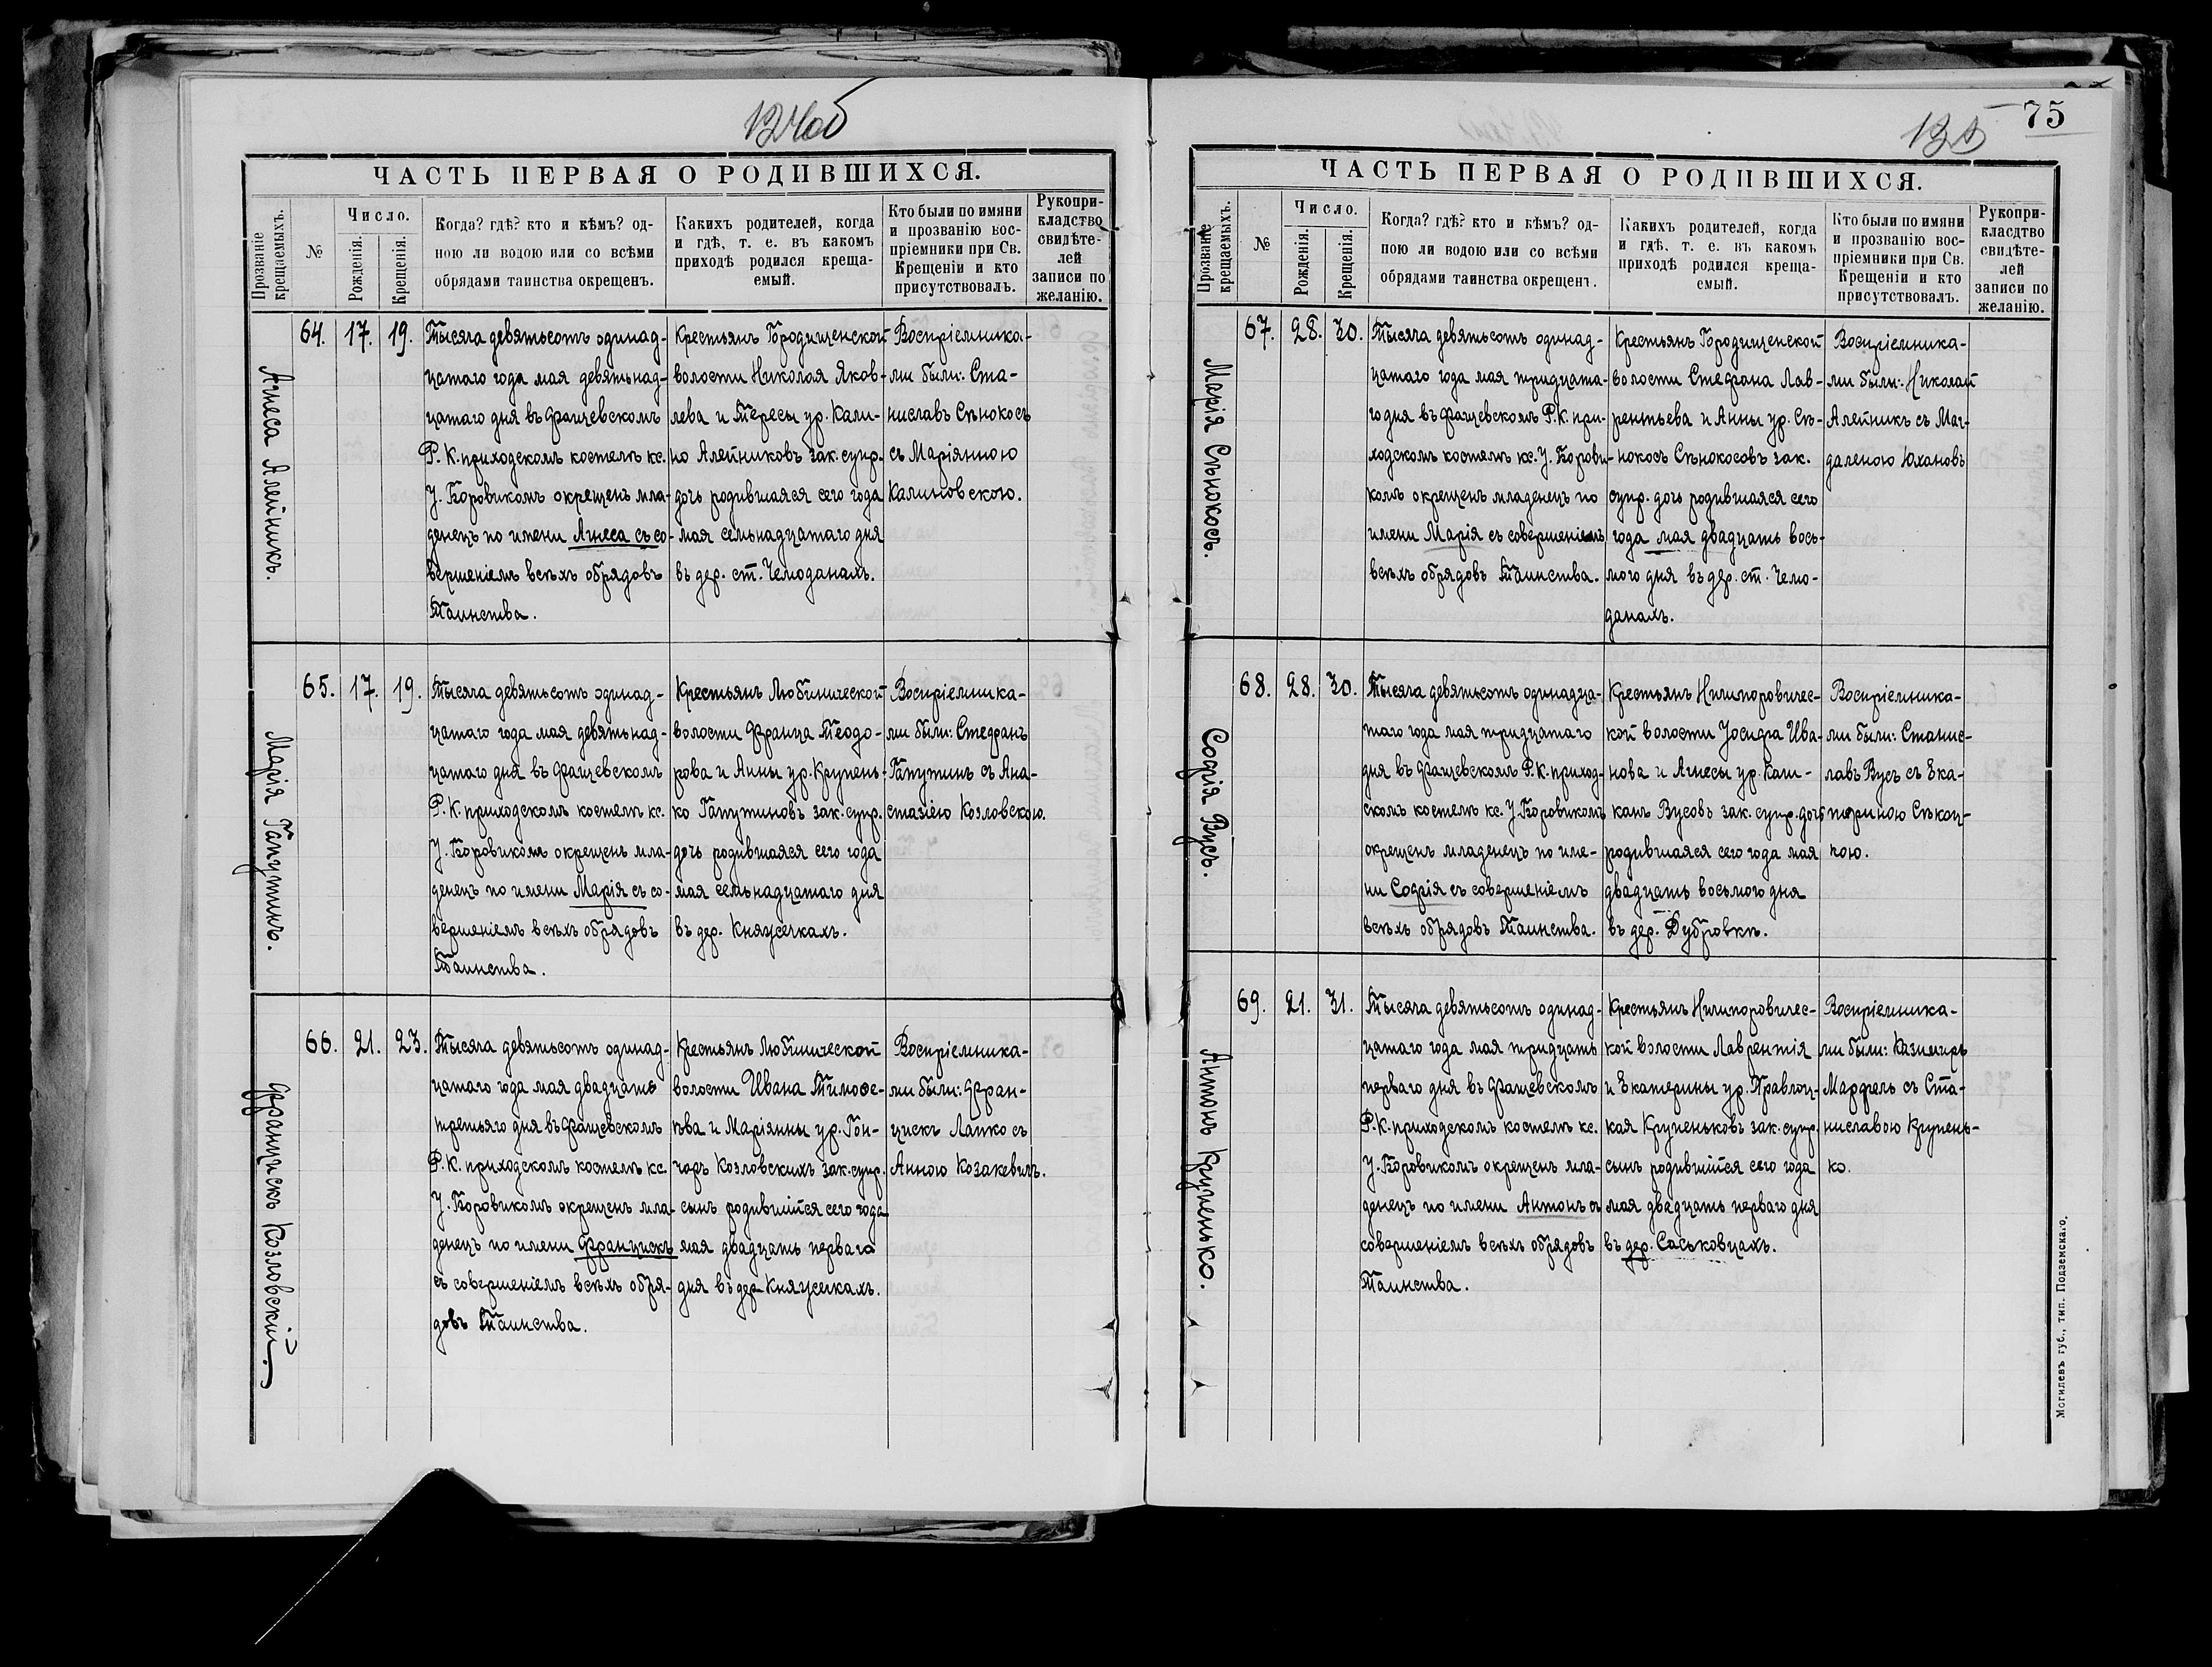 124об
ЧАСТЬ ПЕРВАЯ О РОДИВШИХСЯ.
Прозваніе крещаемыхъ.
№
Число.
Рожденія.
Крещенія.
Когда? гдѣ? кто и кѣмъ? од-
ною ли водою или со всѣми
обрядами таинства окрещенъ.
Какихъ родителей, когда
и гдѣ, т. е. въ какомъ
приходѣ родился креща-
емый.
Кто были по имяни
и прозванію вос-
пріемники при Св.
Крещеніи и кто
присутствовалъ.
Рукопри-
кладство
свидѣте-
лей
записи по
желанію.
Агнеса Алейникъ.
64. 17. 19.
Тысяча девятьсотъ одинад-
цатаго года мая девятьнад-
цатаго дня въ Фащевскомъ
Р. К. приходскомъ костелѣ кс.
У. Боровикомъ окрещенъ мла-
денецъ по имени Агнеса съ со-
вершеніемъ всѣхъ обрядовъ
Таинства.
Крестьянъ Городищенской
волости Николая Яков-
лева и Тересы ур. Кали-
но Алейниковъ зак. супр.
дочь родившаяся сего года
мая семьнадцатаго дня
въ дер. ст. Чемоданахъ.
Воспріемника-
ми были: Ста-
ниславъ Сѣнокосъ
съ Маріянною
Калиновскою.
Марія Гапутинъ.
65. 17. 19.
Тысяча девятьсотъ одинад-
цатаго года мая девятьнад-
цатаго дня въ Фащевскомъ
Р. К. приходскомъ костелѣ кс.
У. Боровикомъ окрещенъ мла-
денецъ по имени Марія съ со-
вершеніемъ всѣхъ обрядовъ
Таинства.
Крестьянъ Любинической
волости Франца Теодо-
рова и Анны ур. Крупень-
ко Гапутиновъ зак. супр.
дочь родившаяся сего года
мая семьнадцатаго дня
въ дер. Княжечкахъ.
Воспріемника-
ми были: Стефанъ
Гапутинъ съ Ана-
стазіею Козловскою.
Францискъ Козловскій.
66. 21. 23.
Тысяча девятьсотъ одинад-
цатаго года мая двадцать
третьяго дня въ Фащевскомъ
Р. К. приходскомъ костелѣ кс.
У. Боровикомъ окрещенъ мла-
денецъ по имени Францискъ
съ совершеніемъ всѣхъ обря-
довъ Таинства.
Крестьянъ Любинической
волости Ивана Тимофе-
ѣва и Маріянны ур. Гон-
чаръ Козловскихъ зак. супр.
сынъ родившійся сего года
мая двадцать перваго
дня въ дер. Княжечкахъ.
Воспріемника-
ми были: Фран-
цискъ Лапко съ
Анною Козакевичъ.
75
125
ЧАСТЬ ПЕРВАЯ О РОДИВШИХСЯ.
Прозваніе крещаемыхъ.
№
Число.
Рожденія.
Крещенія.
Когда? гдѣ? кто и кѣмъ? од-
ною ли водою или со всѣми
обрядами таинства окрещенъ.
Какихъ родителей, когда
и гдѣ, т. е. въ какомъ
приходѣ родился креща-
емый.
Кто были по имяни
и прозванію вос-
пріемники при Св.
Крещеніи и кто
присутствовалъ.
Рукопри-
класдтво
свидѣте-
лей
записи по
желанію.
Марія Сѣнокосъ.
67. 28. 30.
Тысяча девятьсотъ одинад-
цатаго года мая тридцата-
го дня въ Фащевскомъ Р. К. при-
ходскомъ костелѣ кс. У. Борови-
комъ окрещенъ младенецъ по
имени Марія съ совершеніемъ
всѣхъ обрядовъ Таинства.
Крестьянъ Городищенской
волости Стефана Лав-
рентьева и Анны ур. Сѣ-
нокосъ Сѣнокосовъ зак.
супр. дочь родившаяся сего
года мая двадцать вось-
мого дня въ дер. ст. Чемо-
данахъ.
Воспріемника-
ми были: Николай
Алейникъ съ Маг-
даленою Юхановъ
Софія Вусъ.
68. 28. 30.
Тысяча девятьсотъ одинадца-
таго года мая тридцатаго
дня въ Фащевскомъ Р. К. приход-
скомъ костелѣ кс. У. Боровикомъ
окрещенъ младенецъ по име-
ни Софія съ совершеніемъ
всѣхъ обрядовъ Таинства.
Крестьянъ Ничипоровичес-
кой волости Іосифа Ива-
нова и Агнесы ур. Каш-
канъ Вусовъ зак. супр. дочь
родившаяся сего года мая
двадцать восьмого дня
въ дер. Дубровкѣ.
Воспріемника-
ми были: Станис-
лавъ Вусъ съ Ека-
териною Сѣкоц-
кою.
Антонъ Крупенько.
69. 21. 31.
Тысяча девятьсотъ одинад-
цатаго года мая тридцать
перваго дня въ Фащевскомъ
Р. К. приходскомъ костелѣ кс.
У. Боровикомъ окрещенъ мла-
денецъ по имени Антонъ съ
совершеніемъ всѣхъ обрядовъ
Таинства.
Крестьянъ Ничипоровичес-
кой волости Лаврентія
и Екатерины ур. Правлоц-
кая Крупеньковъ зак. супр.
сынъ родившійся сего года
мая двадцать перваго дня
въ дер. Саськовцахъ.
Воспріемника-
ми были: Казимиръ
Марфель съ Ста-
ниславою Крупень-
ко.
Могилевъ губ., тип. Подземскаго.